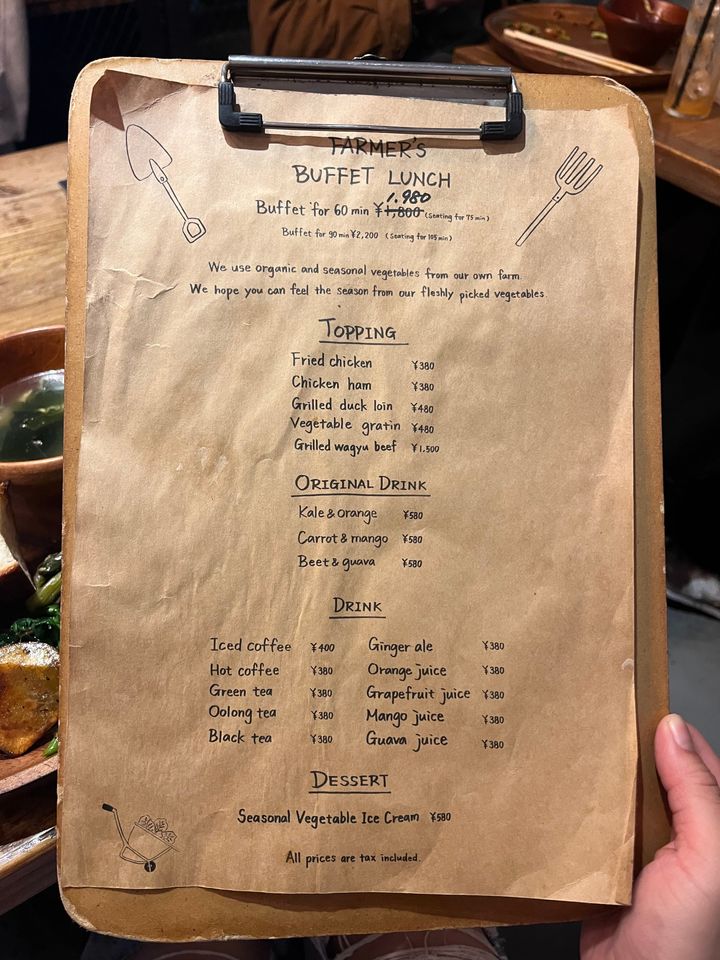 FARMER'S
BUFFET LUNCH
1.980
Buffet for 60 min ¥1,800 (Seating for 75 min)
Buffet for 90 min ¥2,200 (Seating for 105 min)
We use organic and seasonal vegetables from our own farm.
We hope you can feel the season from our fleshly picked vegetables.
TOPPING
Fried chicken ¥380
Chicken ham ¥380
Grilled duck loin ¥480
Vegetable gratin ¥480
Grilled wagyu beef ¥1.500
ORIGINAL DRINK
Kale & orange ¥580
Carrot & mango ¥580
Beet & guava ¥580
DRINK
Iced coffee ¥400 Ginger ale ¥380
Hot coffee ¥380 Orange juice ¥380
Green tea ¥380 Grapefruit juice ¥380
Oolong tea ¥380 Mango juice ¥380
Black tea ¥380 Guava juice ¥380
DESSERT
Seasonal Vegetable Ice Cream ¥580
All prices are tax included.